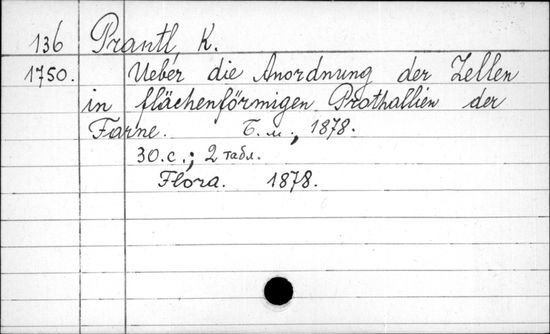 136 Prantl, K.
1750. Ueber die Anordnung der Zellen
in flächenförmigen Prothallien der
Farne. Б. м., 1878.
30.с.; 2 табл.
Flora. 1878.